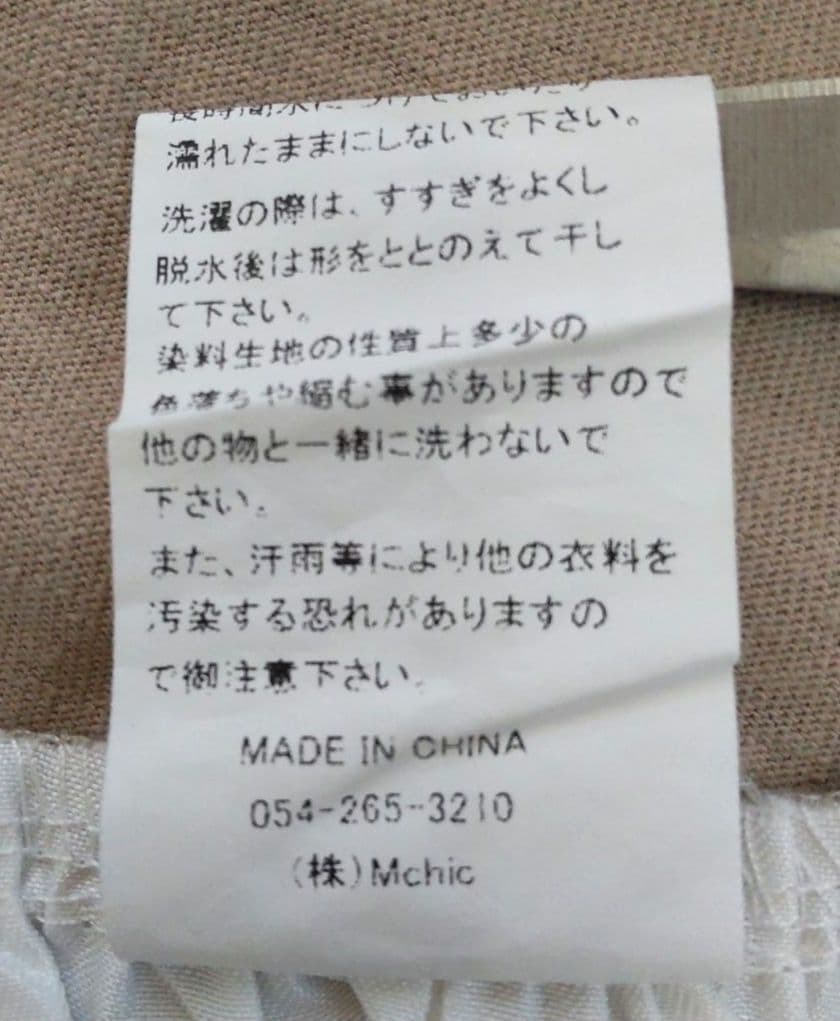 長時間水につけておいたり
濡れたままにしないで下さい。
洗濯の際は、すすぎをよくし
脱水後は形をととのえて干し
て下さい。
染料生地の性質上多少の
色落ちや縮む事がありますので
他の物と一緒に洗わないで
下さい。
また、汗雨等により他の衣料を
汚染する恐れがありますの
で御注意下さい。
MADE IN CHINA
054-265-3210
(株)Mchic